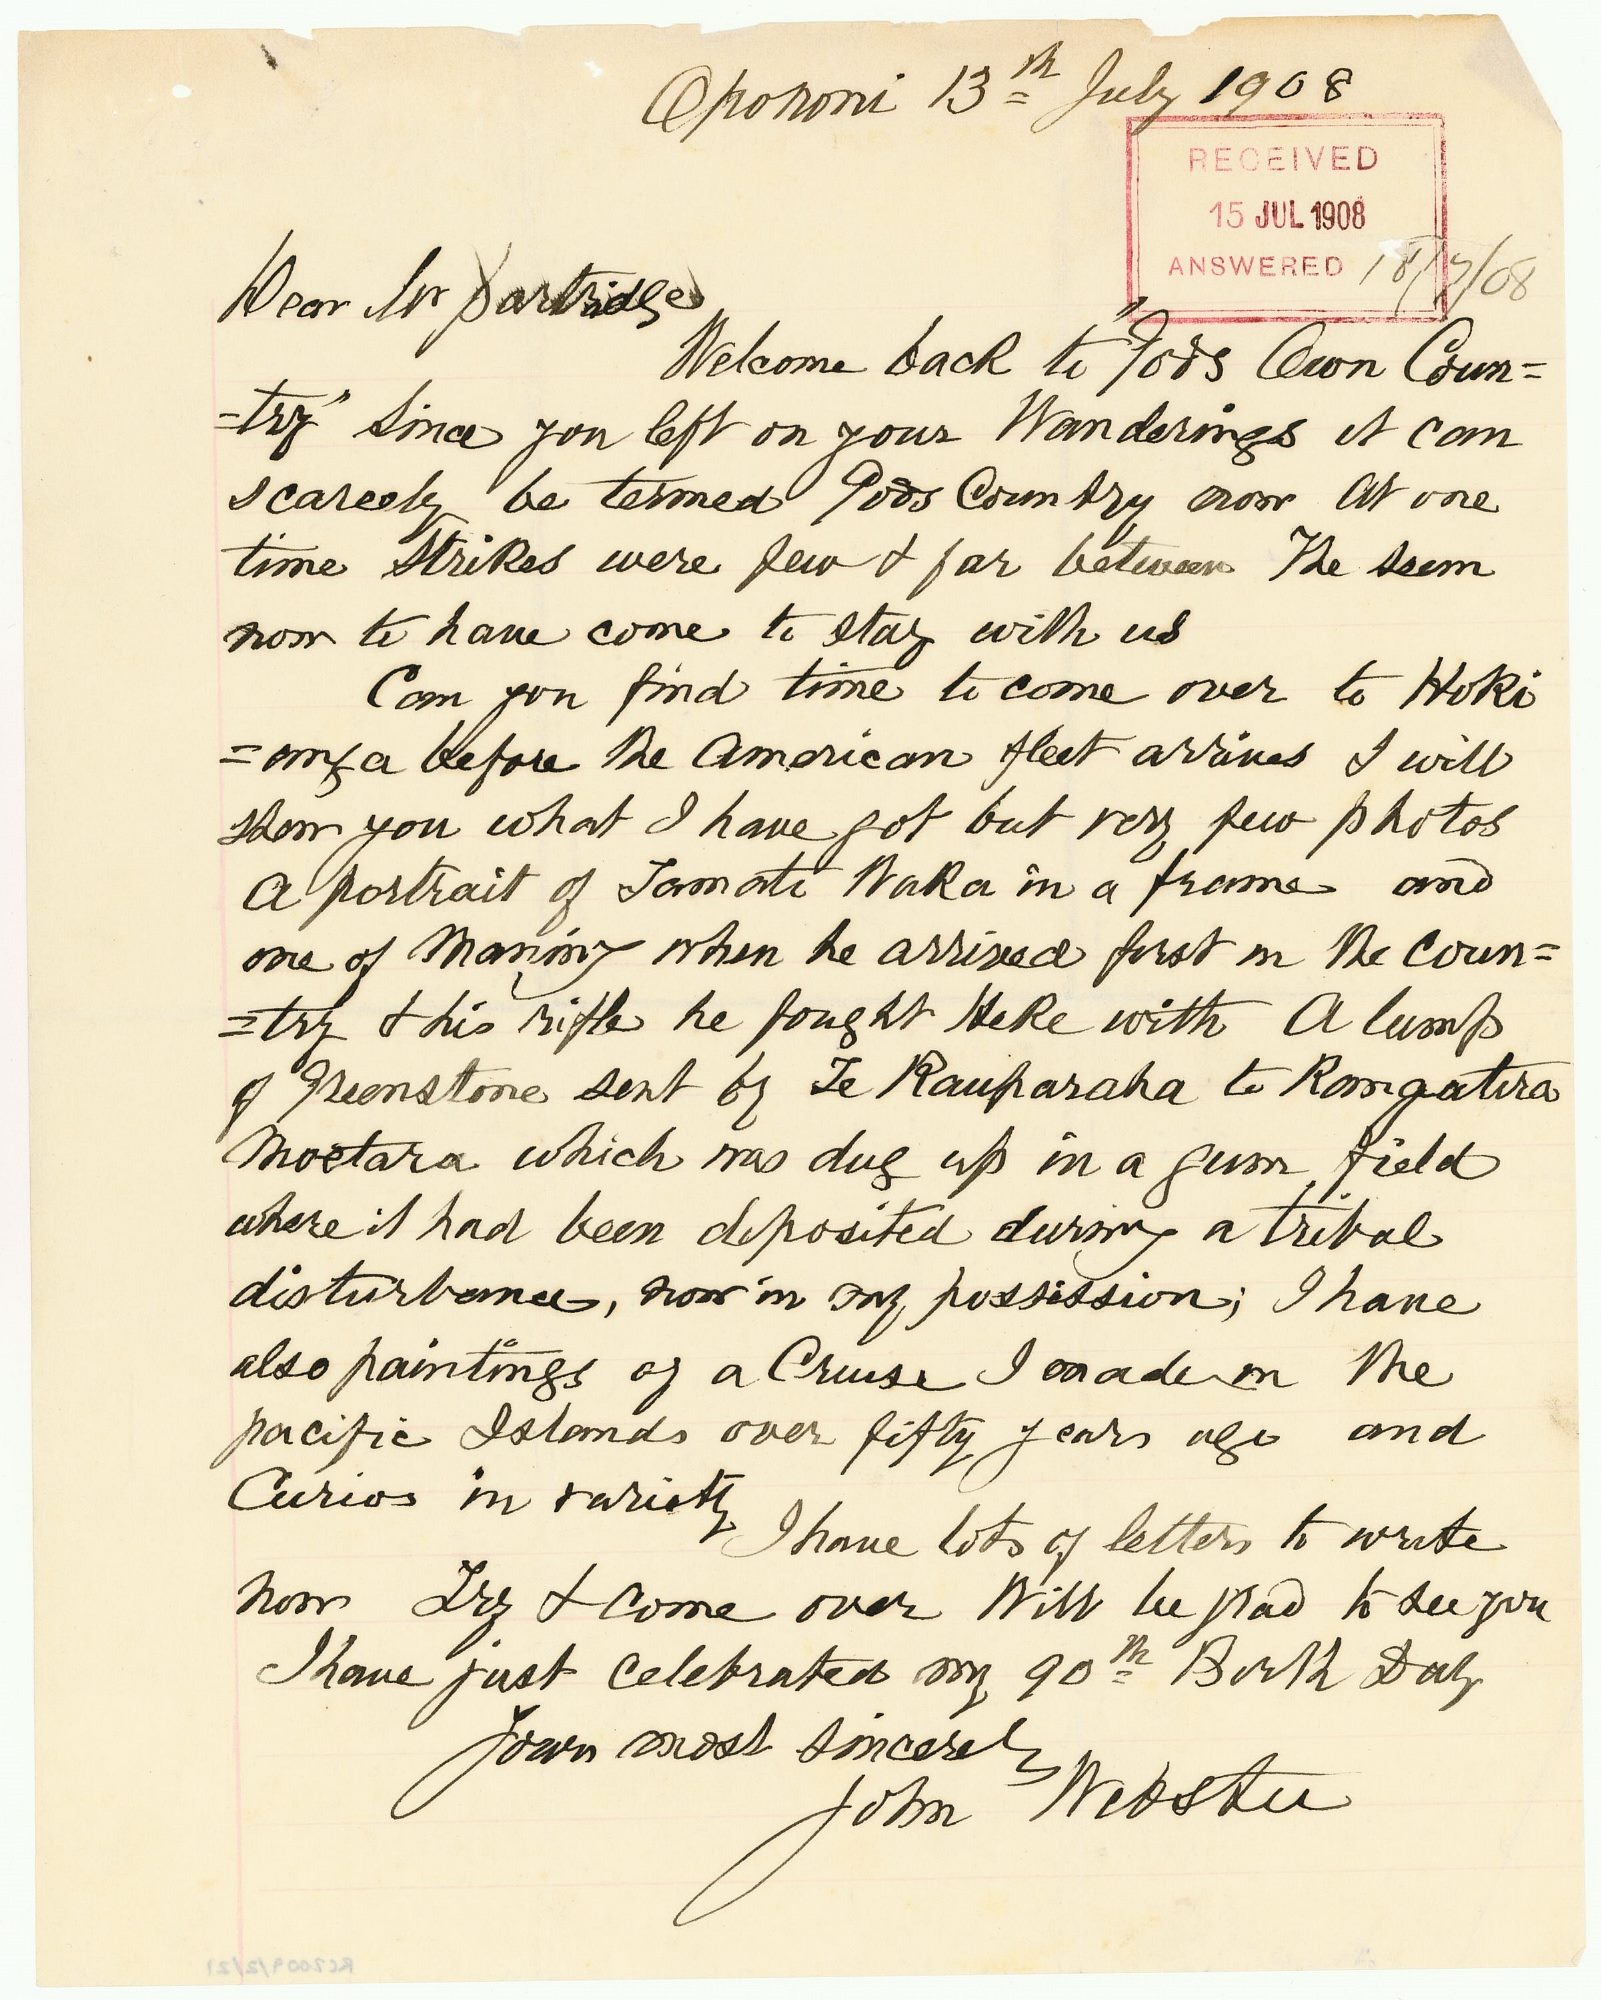 Opononi 13th July 1908
RECEIVED
15 JUL 1908
ANSWERED 18/7/08
Dear Mr Partridge
Welcome back to "Gods Own Coun=
=try" Since you left on your Wanderings it can
scarcely be termed Gods Country now At one
time Strikes were few & far between The seem
now to have come to stay with us
Can you find time to come over to Hoki
=anga before the American fleet arrives I will
show you what I have got but very few photos
A portrait of Tamati Waka in a frame and
one of Maning when he arrived first in the Coun=
=try & his rifle he fought Heke with A lump
of Greenstone sent by Te Rauparaha to Rangatira
Moetara which was dug up in a gum field
where it had been deposited during a tribal
disturbance, now in my possession; I have
also paintings of a Cruise I made in the
pacific Islands over fifty years ago and
Curios in variety
I have lots of letters to write
now Try & come over Will be glad to see you
I have just celebrated my 90th Birth Day
Yours most sincerely
John Webster
RC2009/2/21